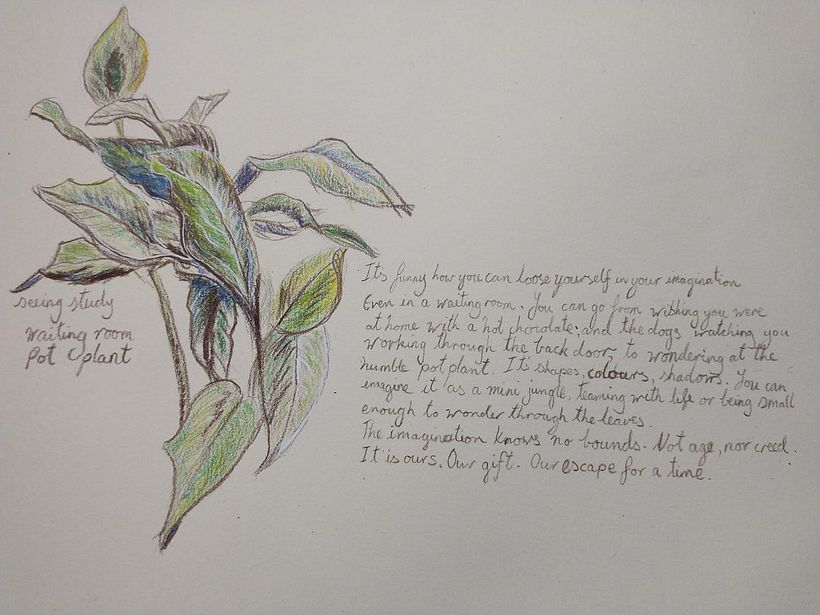 seeing study
waiting room
Pot plant
Its funny how you can loose yourself in your imagination
Even in a waiting room. You can go from wishing you were
at home with a hot chocolate, and the dogs watching you
working through the back door, to wondering at the
humble pot plant. It's shapes, colours, shadows. You can
imagine it as a mini jungle, teaming with life or being small
enough to wonder through the leaves.
The imagination knows no bounds. Not age, nor creed.
It is ours. Our gift. Our escape for a time.